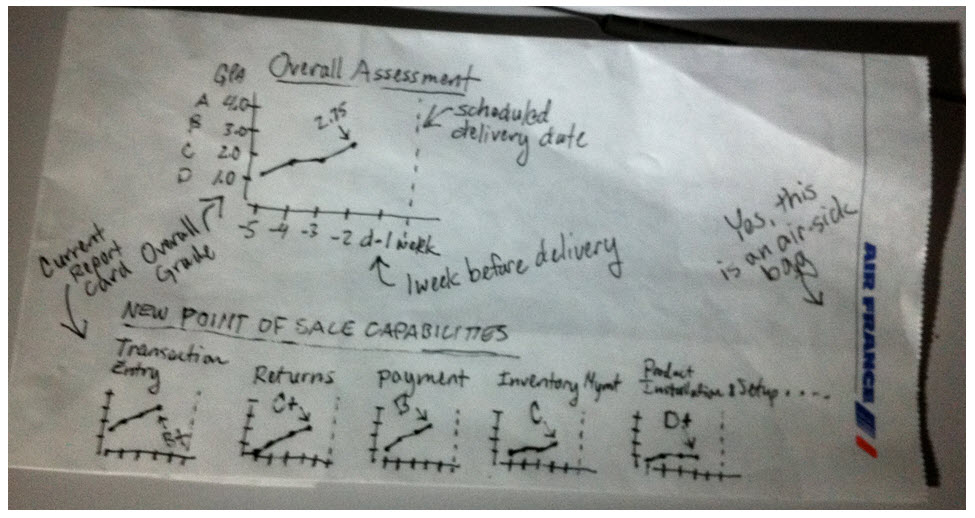 GPA
Overall Assessment
A 4.0
B 3.0
C 2.0
D 1.0
2.75
scheduled
delivery date
-5 -4 -3 -2 d-1 week
1 week before delivery
Overall
Grade
Current
Report
Card
Yes, this
is an air-sick
bag
AIR FRANCE
NEW POINT OF SALE CAPABILITIES
Transaction
Entry
B+
Returns
C+
Payment
B
Inventory Mgmt
C
Product
Installation & Setup . . . .
D+